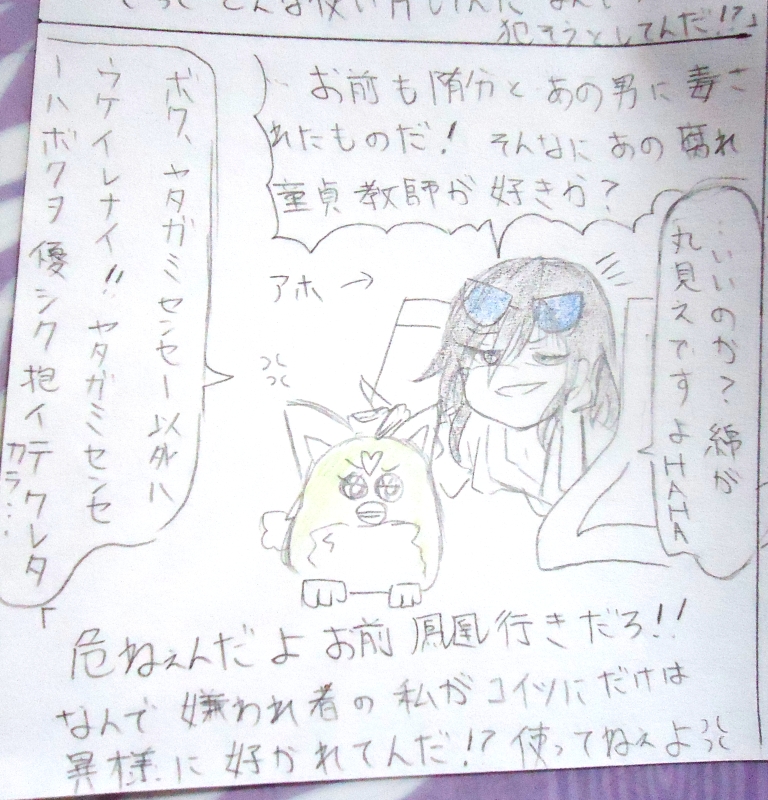 犯そうとしてんだ!?」
お前も随分とあの男に毒さ
れたものだ! そんなにあの腐れ
童貞教師が好きか?
…いいのか? 綿が
丸見えですよHAHA
アホ→
ボク、ヤタガミセンセー以外ハ
ウケイレナイ!! ヤタガミセンセ
ーハボクヲ優シク抱イテクレタ
カラ…
「
危ねぇんだよお前鳳凰行きだろ!!
なんで嫌われ者の私がコイツにだけは
異様に好かれてんだ!?使ってねぇよ